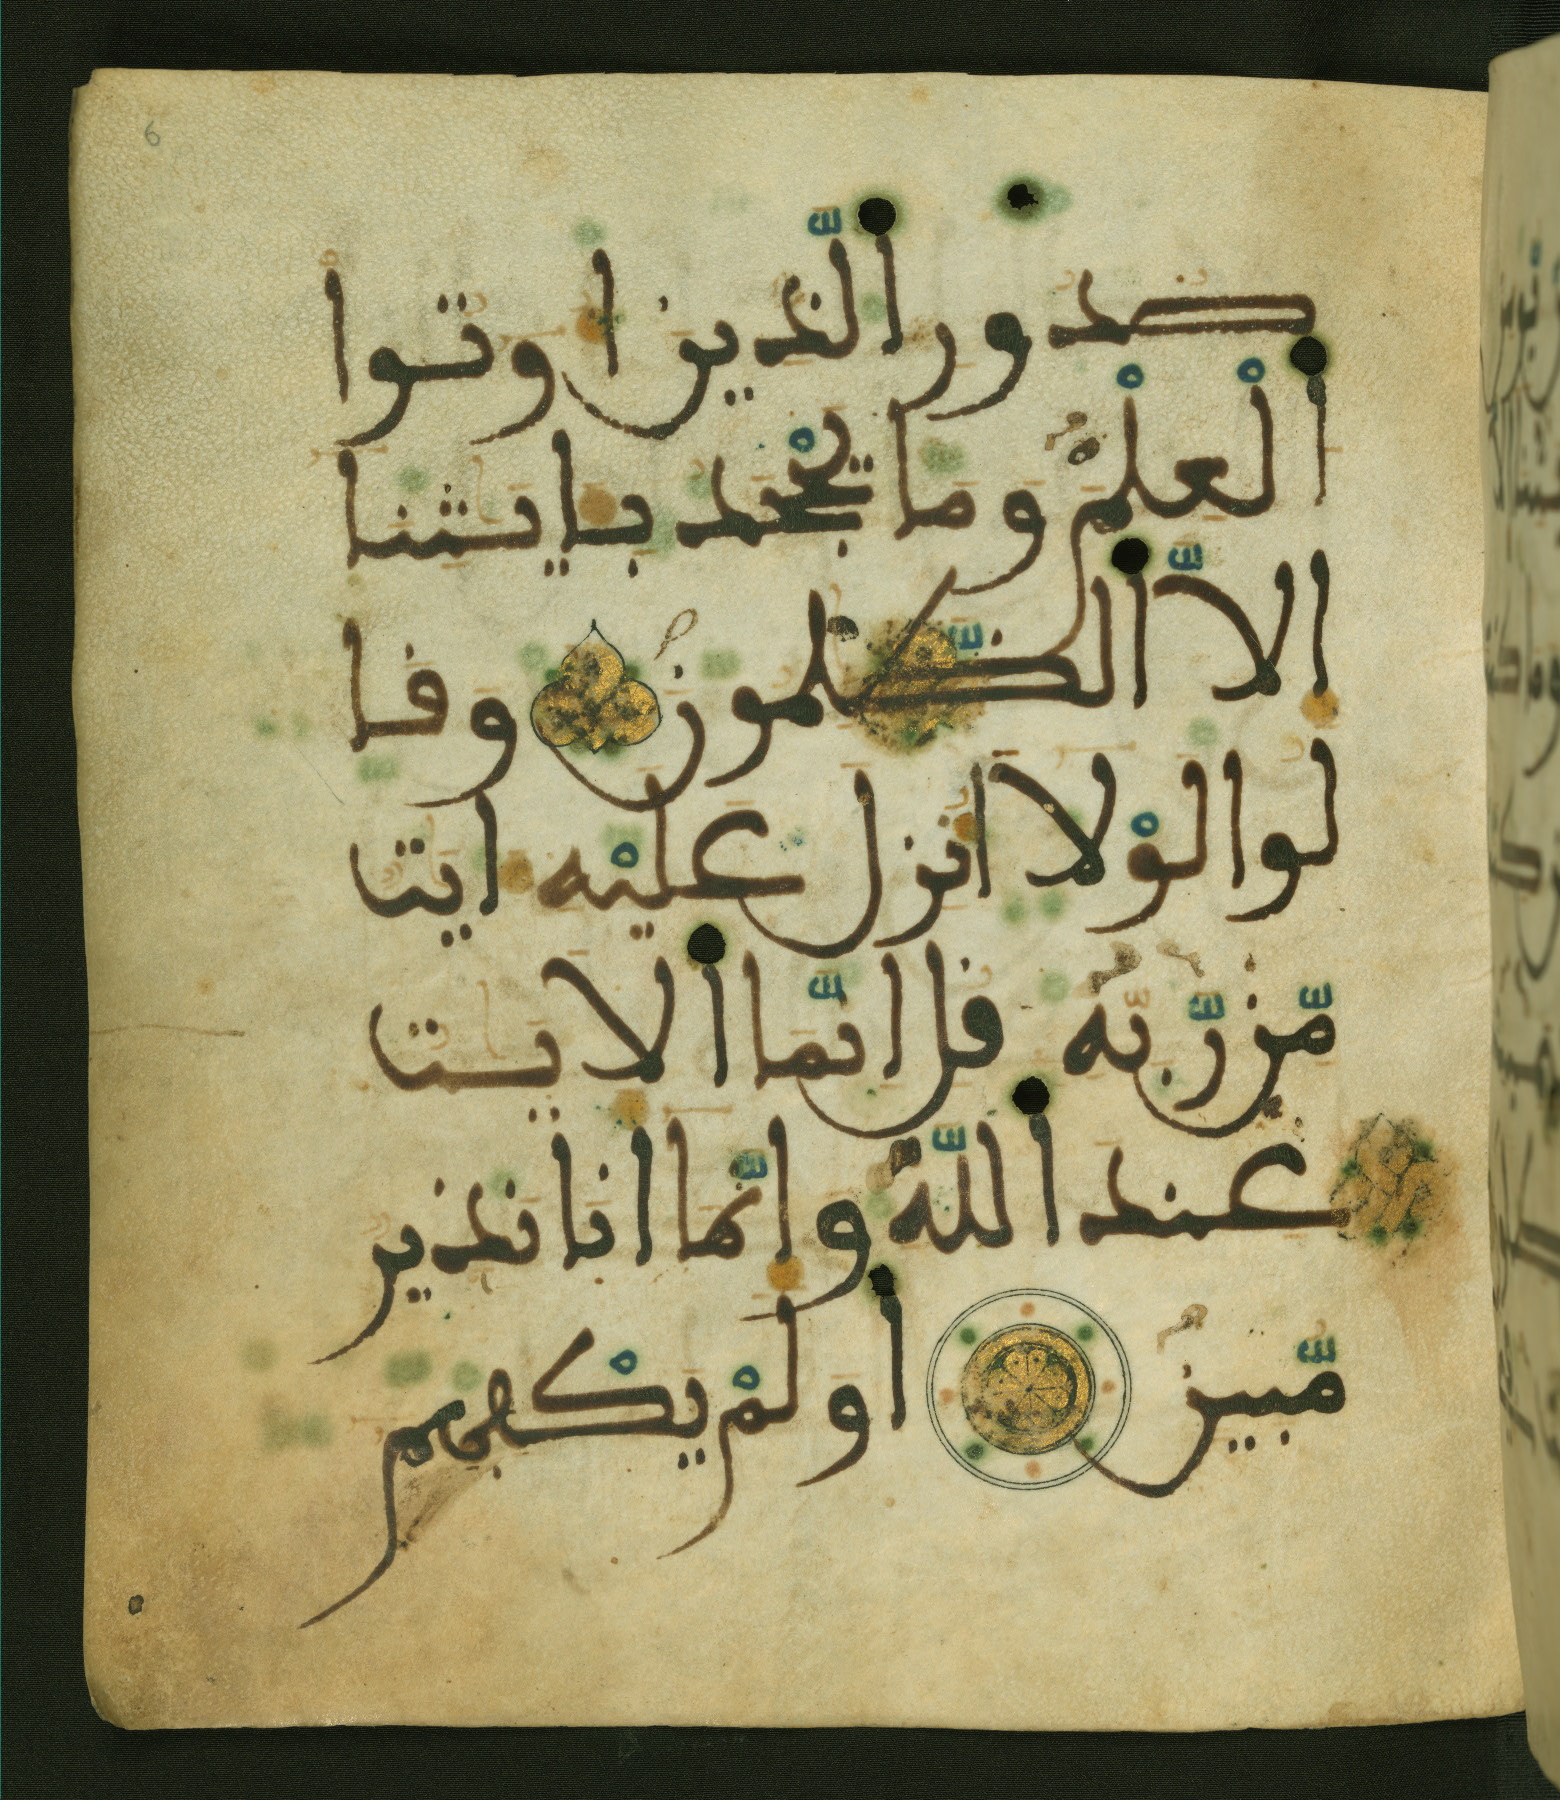 6
صدور الذين اوتوا
العلم وما يجحد بـايـتنا
الا الظلمون وقا
لوا لولا انزل عليه ايت
من ربه قل انما الايت
عند الله وانما انا نذير
مبين اولم يكفهم